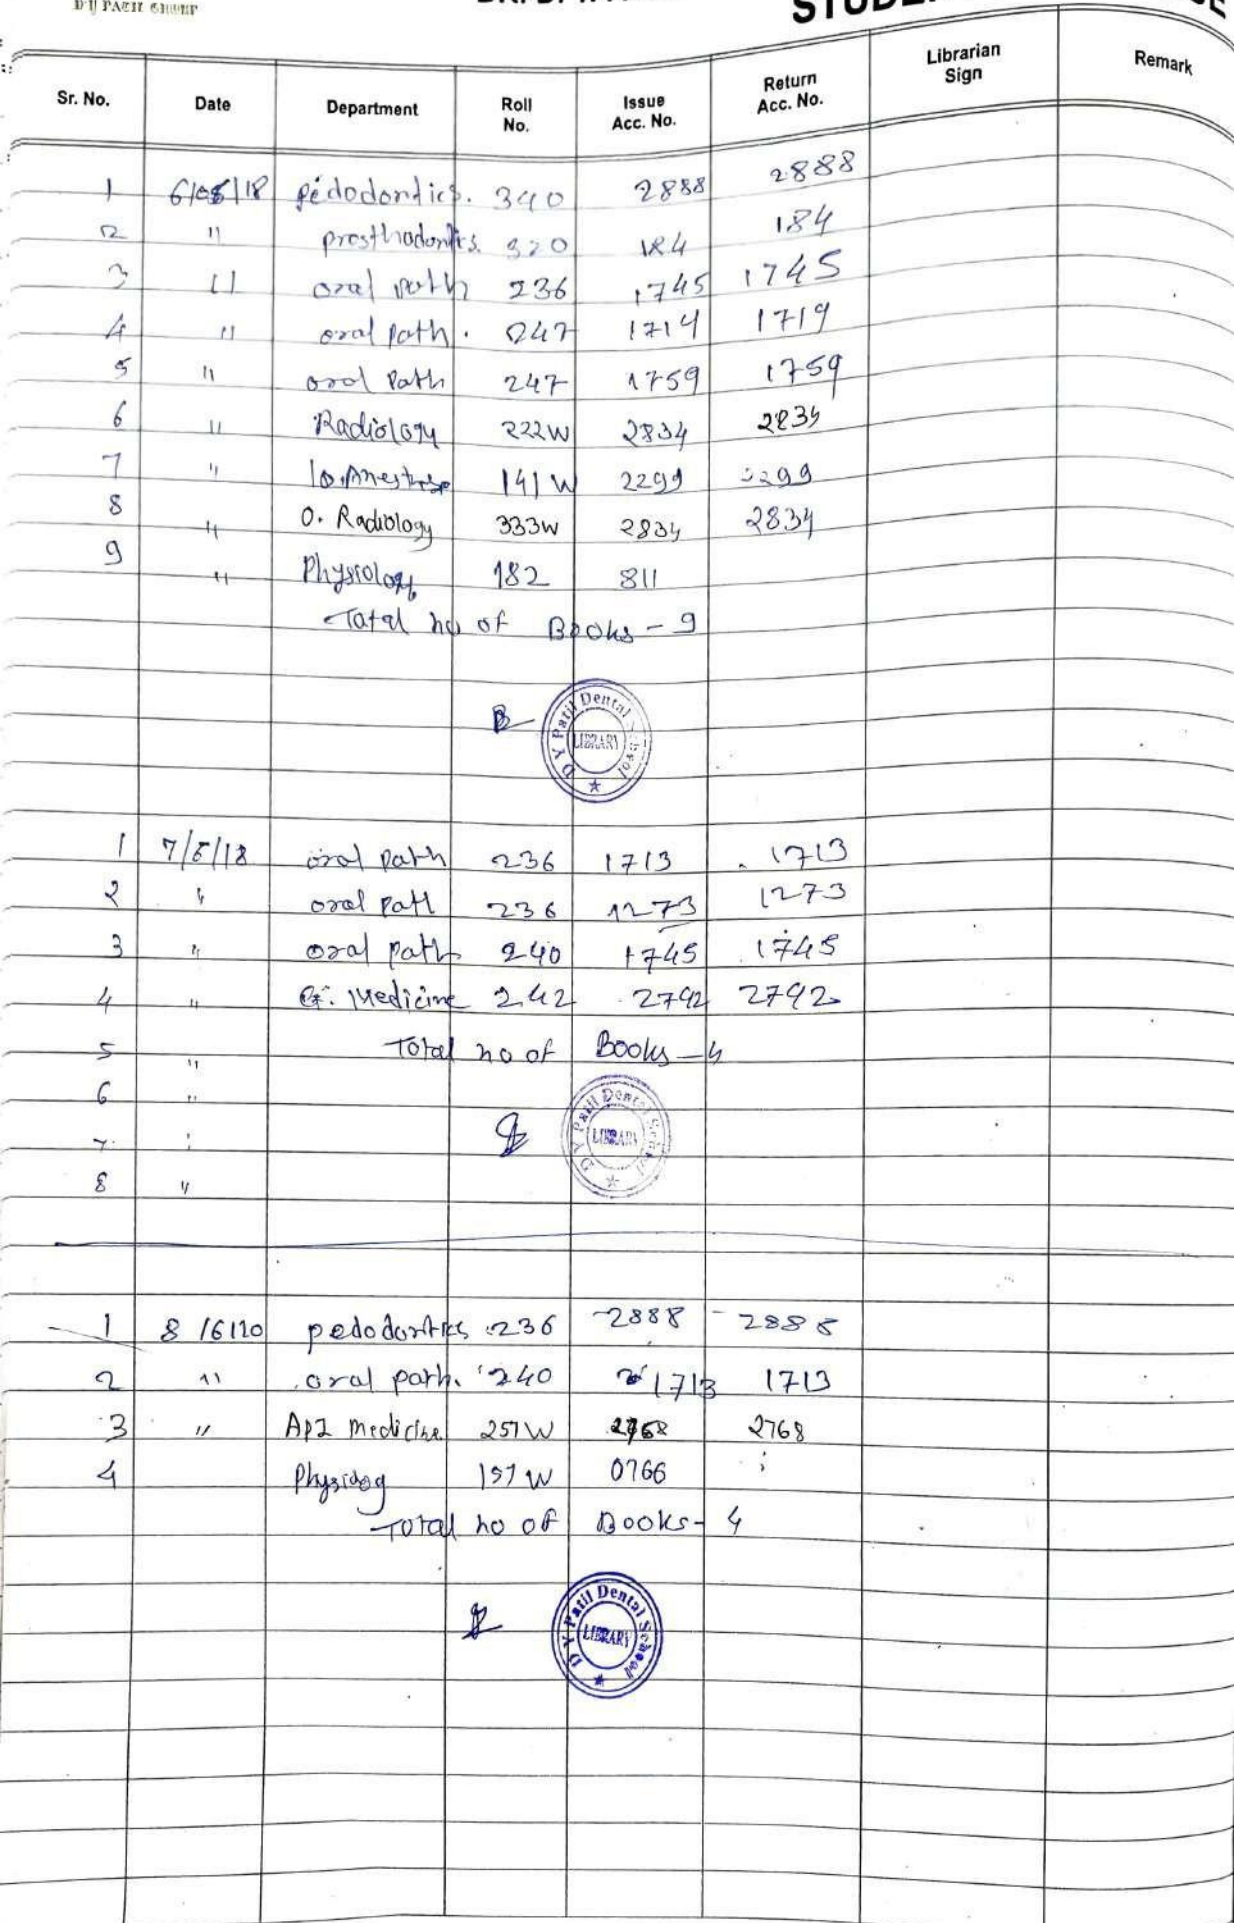 D Y PATIL GROUP
Sr. No. Date Department Roll No. Issue Acc. No. Return Acc. No. Librarian Sign Remark
1 6/06/18 pedodontics. 340 2888 2888
2 " prosthodontics. 320 184 184
3 " oral path 236 1745 1745
4 " oral path. 247 1714 1719
5 " oral Path 247 1759 1759
6 " Radiology 222W 2834 2834
7 " 141W 2299 2299
8 " O. Radiology 333W 2834 2834
9 " Physiology 182 811
Total no of Books - 9
D Y Patil Dental School
LIBRARY
1 7/6/18 oral path 236 1713 1713
2 " oral path 236 1273 1273
3 " oral path 240 1745 1745
4 " G. Medicine 242 2792 2792
5 " Total no of Books - 4
6 "
7 "
8 "
D Y Patil Dental School
LIBRARY
1 8/6/20 pedodontics 236 2888 2888
2 " oral path. 240 1713 1713
3 " Apl medicine 257W 2768 2768
4 Physiology 157W 0766
Total no of Books - 4
D Y Patil Dental School
LIBRARY